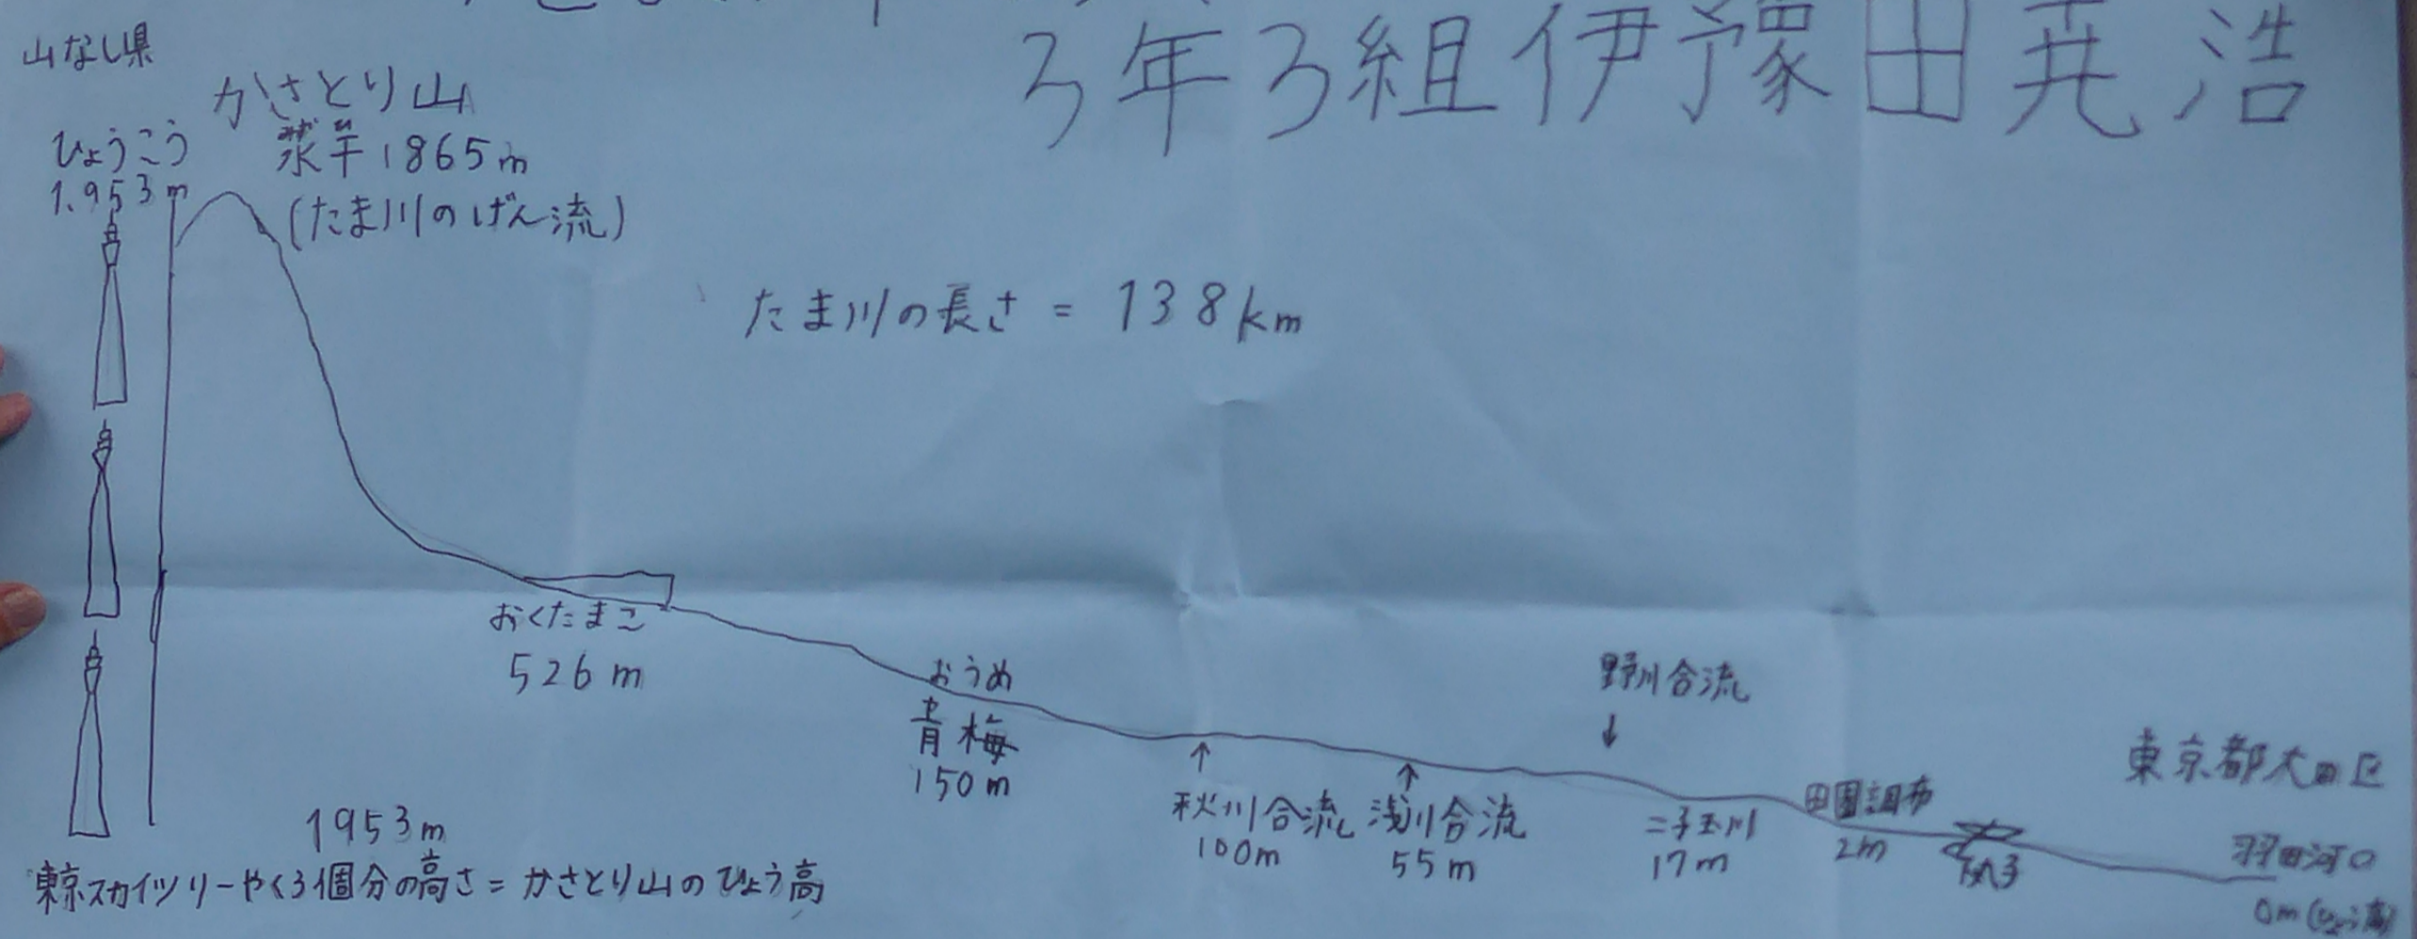 3年3組伊豫田尭浩
山なし県
かさとり山
ひょうこう
1.953m
みず ひ
水干1865m
(たま川のげん流)
たま川の長さ = 138km
おくたまこ
526m
おうめ
青梅
150m
秋川合流
100m
浅川合流
55m
野川合流
↓
二子玉川
17m
田園調布
2m
東京都大田区
羽田河口
0m(ひょう高)
1953m
東京スカイツリーやく3個分の高さ=かさとり山のひょう高